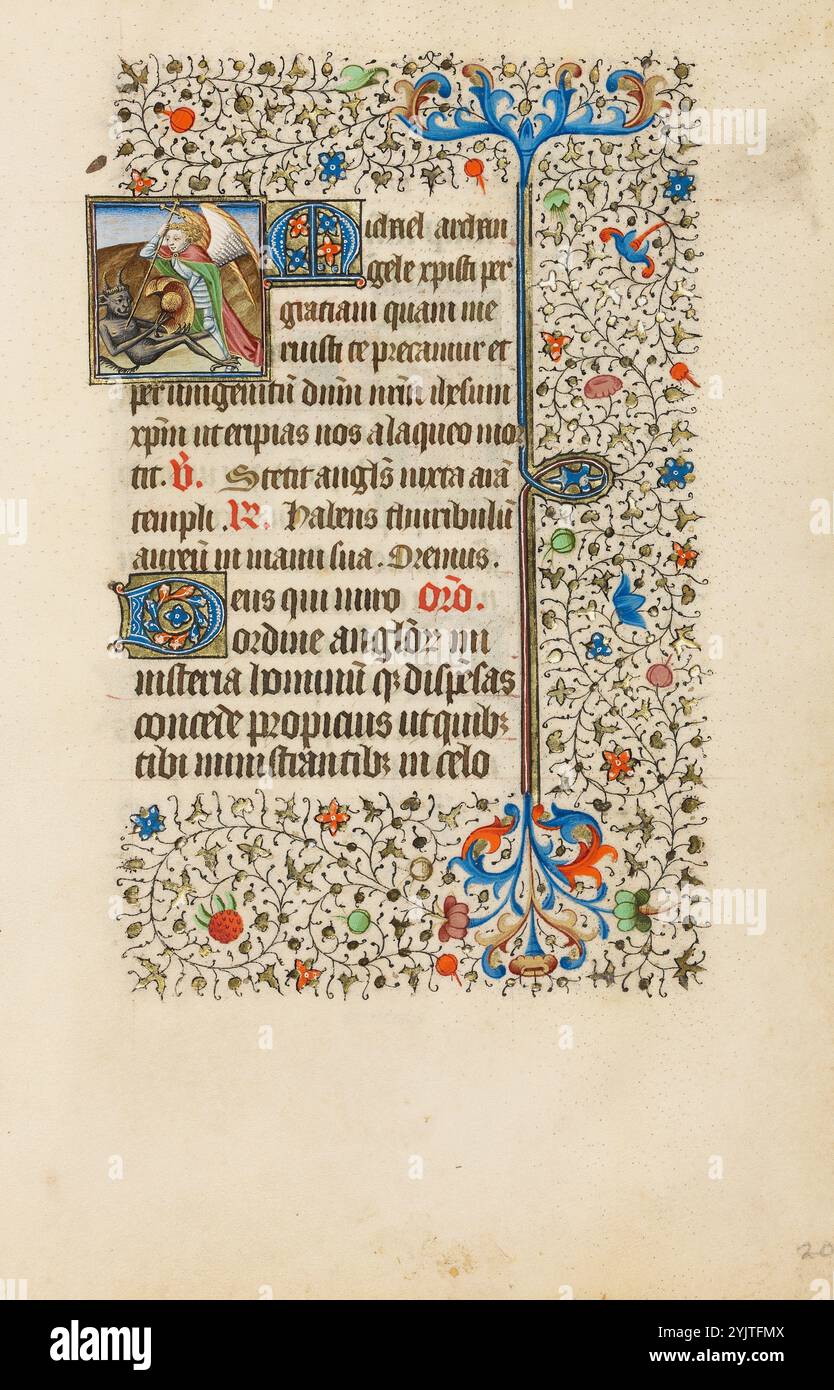 Michael archan
gele xpisti per
graciam quam me
ruisti te precamur et
per unigenitū dn̄m nr̄m ih̄esum
xp̄m ut eripias nos a laqueo mor
tis. V̄. Stetit angl̄s iuxta arā
templi. R̄. Habens thuribulū
aureū in manu sua. Oremus.
Deus qui miro Or̄o.
ordine angl̄oꝝ mi
nisteria hominū qꝫ dispēsas
concede propicius ut quibꝫ
tibi ministrantibꝫ in celo
20
alamy
Image ID: 2YJTFMX
www.alamy.com